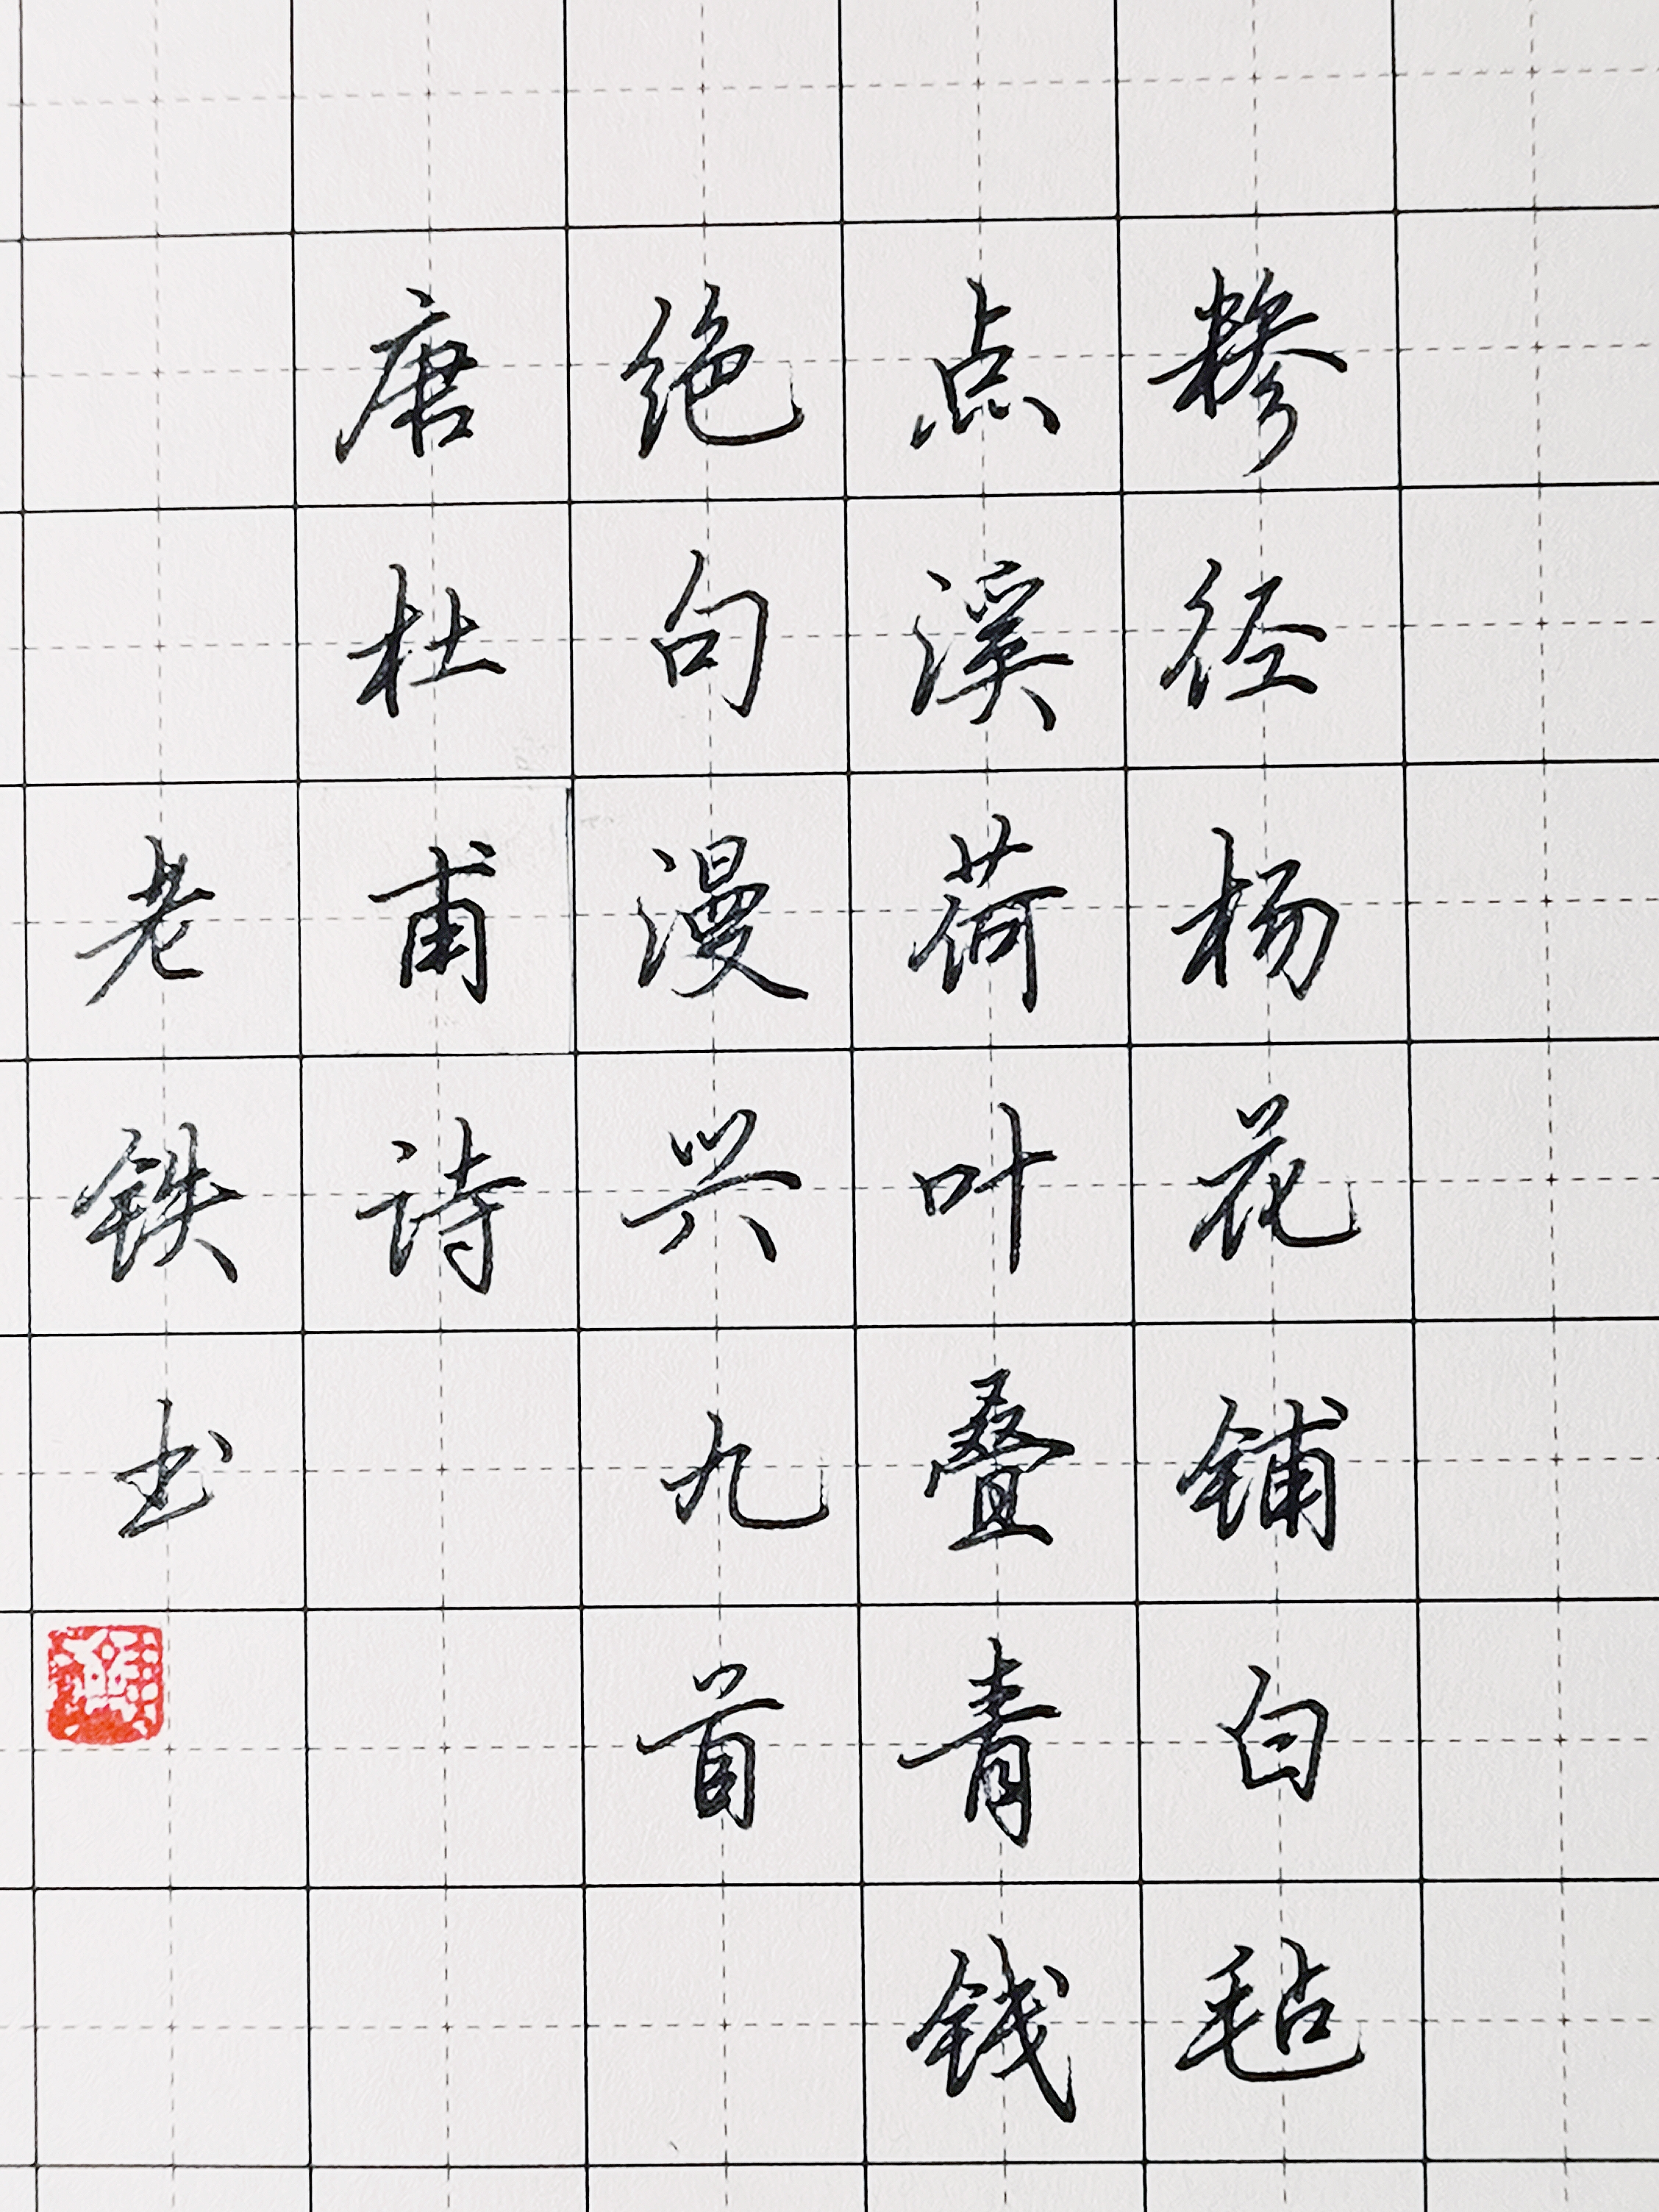 糁径杨花铺白毡
点溪荷叶叠青钱
绝句漫兴九首
唐杜甫诗
老铁书